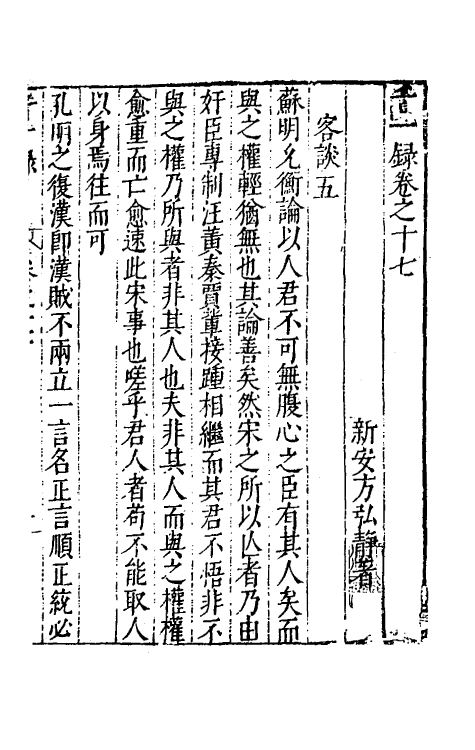 錄卷之十七
新安方弘靜著
客談五
蘇明允衡論以人君不可無腹心之臣有其人矣而
與之權輕猶無也其論善矣然宋之所以亾者乃由
奸臣專制汪黃秦賈軰接踵相繼而其君不悟非不
與之權乃所與者非其人也夫非其人而與之權權
愈重而亡愈速此宋事也嗟乎君人者苟不能取人
以身焉往而可
孔明之復漢即漢賊不兩立一言名正言順正統必